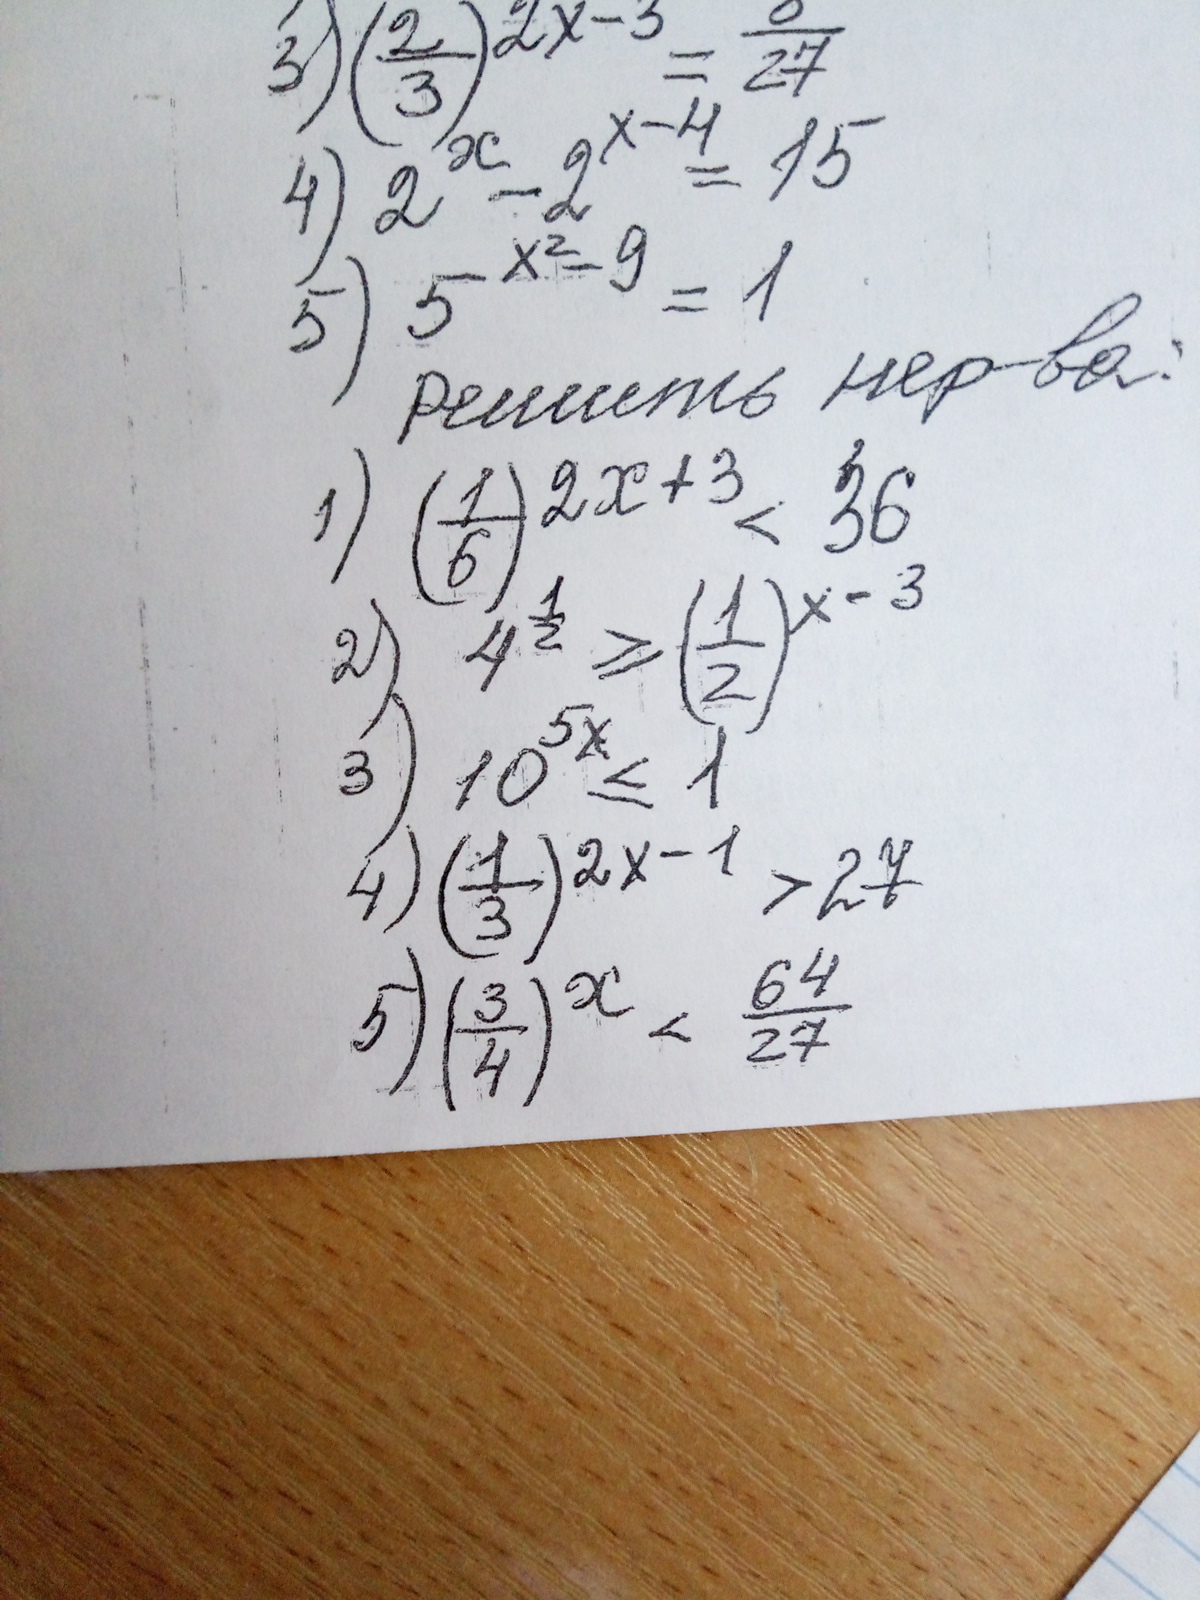 3) (2/3)^{2x-3} = 8/27
4) 2^x - 2^{x-4} = 15
5) 5^{x²-9} = 1
Решить нер-ва:
1) (1/6)^{2x+3} < 36
2) 4^{1/2} ⩾ (1/2)^{x-3}
3) 10^{5x} ≤ 1
4) (1/3)^{2x-1} > 27
5) (3/4)^x < 64/27